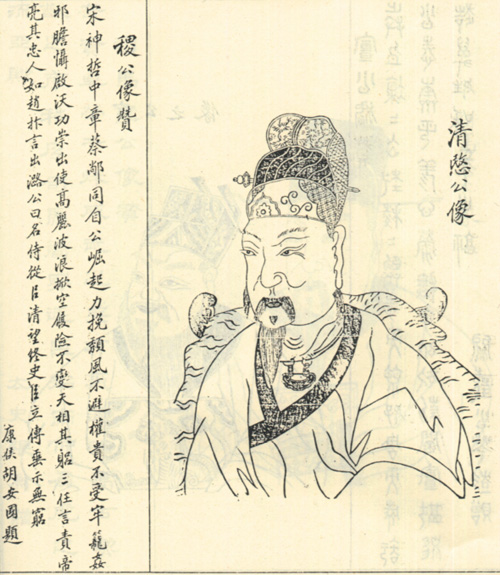 清愍公像
稷公像贊
宋神哲中章蔡同自公崛起力挽頹風不避權貴不受牢籠姦
邪膽懾啟沃功崇出使高麗波浪掀空履險不變天相其躬三任言責帝
亮其忠人如趙抃言出潞公曰名侍從臣清望終史臣立傳垂示無窮
康侯胡安國題